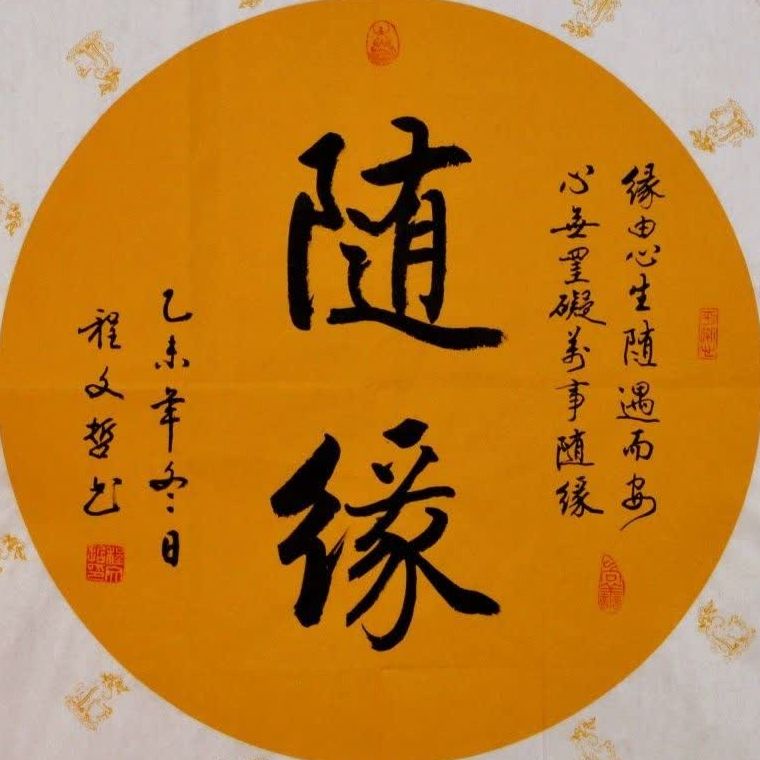 随
缘
缘由心生随遇而安
心無罣礙萬事随缘
乙未年冬日
程文哲书